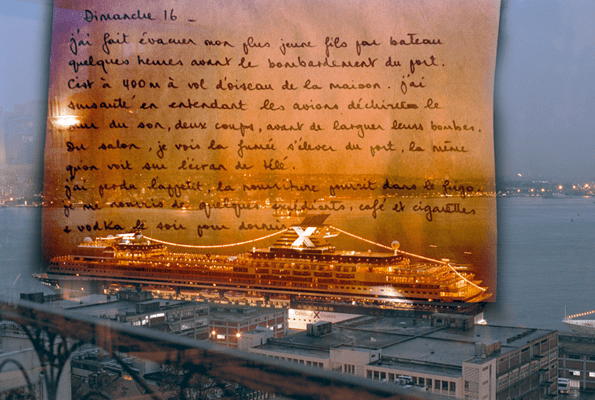 Dimanche 16 _
j'ai fait évacuer mon plus jeune fils par bateau
quelques heures avant le bombardement du port.
C'est à 400m à vol d'oiseau de la maison. j'ai
sursauté en entendant les avions déchirer le
mur du son, deux coups, avant de larguer leurs bombes.
Du salon, je vois la fumée s'élever du port, la même
qu'on voit sur l'écran de télé.
j'ai perdu l'appétit, la nourriture pourrit dans le frigo.
je me nourris de quelques, café et cigarettes
e vodka le soir pour dormir
X
X